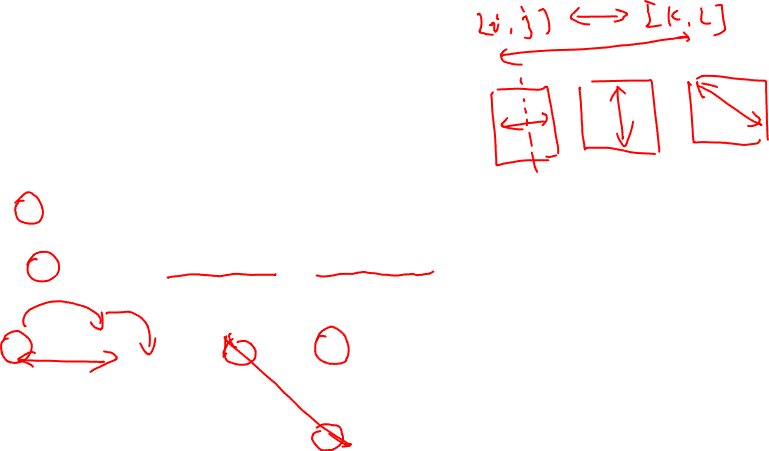 [i, j] ↔ [k, l]